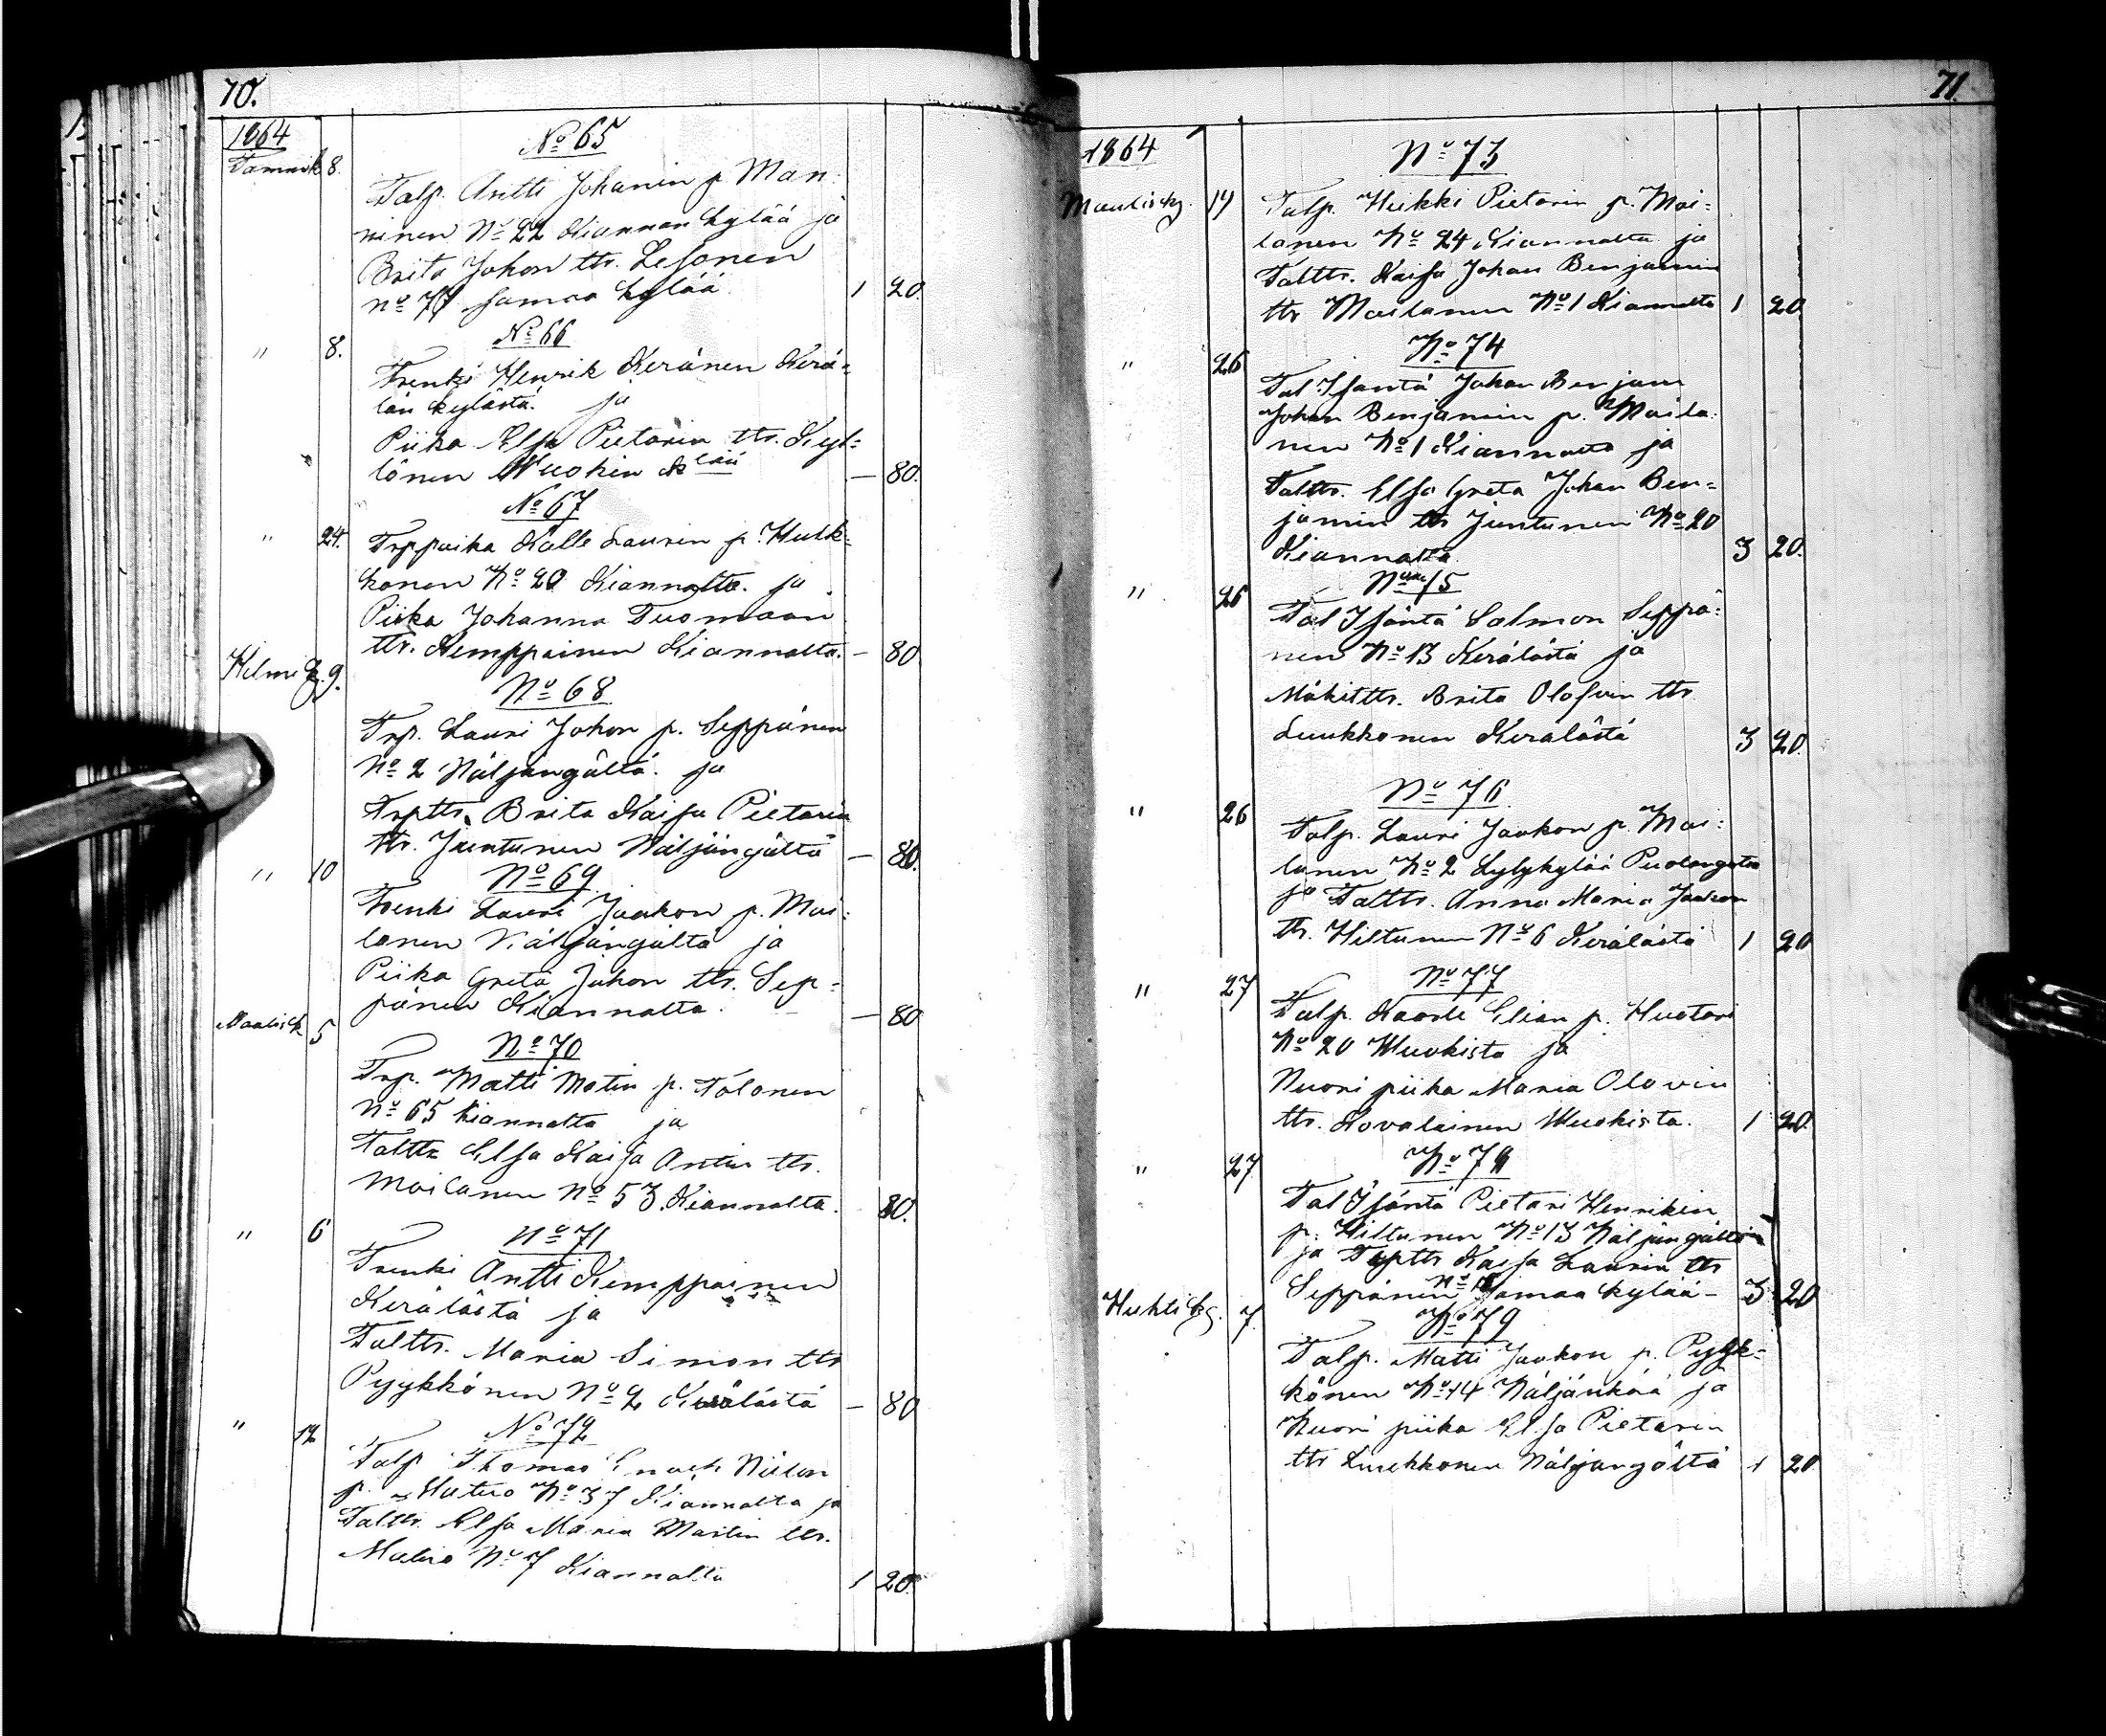 70.
1864
No 65
Tammik 8.
Talp. Antti Johanin p. Man-
ninen No 22 Kiannan kylää ja
Brita Johon ttr. Lesonen
no 77 samaa kylää 1 20.
No 66
" 8.
Trenki Henrik Keränen Kerä-
län kylästä. ja
Piika Elsa Pietarin ttr. Kyl-
lönen Wuokin k lää — 80.
No 67
" 24.
Trppoika Kalle Laurin p. Hulk-
konen No 20 Kiannalta. ja
Piika Johanna Tuomaan
ttr. Kemppainen Kiannalta. — 80
Helmi k. 9.
No 68
Trp. Lauri Johon p. Seppänen
No 2 Näljängältä. ja
Trpttr. Brita Kaisa Pietarin
ttr. Juntunen Näljängältä — 80.
" 10
No 69
Trenki Lauri Jaakon p. Moi-
lanen Näljängältä ja
Piika Greta Juhon ttr. Sep-
pänen Kiannalta. — 80
Maalisk 5
No 70
Trp. Matti Matin p. Tolonen
No 65 Kiannalta ja
Talttr Elsa Kaisa Antin ttr.
Moilanen No 53. Kiannalta. 80.
" 6
No 71
Trenki Antti Kemppainen
Kerälästä ja
Talttr. Maria Simon ttr
Pyykkönen No 2 Kerälästä — 80
" 12
No 72
Talp Thomas Enoch Niilon
p. Matero No 37 Kiannalta ja
Talttr. Elsa Maria Martin ttr.
Matero No 7 Kiannalta 1 20.
71.
1864
No 73
Maalisky. 19
Talp. Heikki Pietarin p. Moi-
lanen No 24 Kiannalta ja
Talttr. Kaisa Johan Benjamin
ttr Moilanen No 1 Kiannalta 1 20
No 74
" 26
Tal Isäntä Johan Benjam
Johan Benjamin p. Moila-
nen No 1 Kiannalta ja
Talttr. Elsa Greta Johan Ben-
jamin ttr Juntunen No 20
Kiannalta. 3 20.
No 75
" 26
Tal Isäntä Salmon Seppä-
nen No 13 Kerälästä ja
Mäkittr. Brita Olofvin ttr.
Luukkonen Kerälästä 3 20.
No 76.
" 26
Talp. Lauri Jaakon p. Moi-
lanen No 2 Lylykylää Puolangalta
ja Talttr. Anna Maria Jaakon
ttr. Hiltunen No 6 Kerälästä 1 20
No 77
" 27
Talp. Kaarle Elian p. Huotari
No 20 Wuokista ja
Nuori piika Maria Olovin
ttr. Kovalainen Wuokista. 1 20.
No 78
" 27
Tal Isäntä Pietari Henrikin
p. Hiltunen No 13 Näljängältä
ja Trpttr Kaisa Laurin ttr
Seppänen samaa kylää- 3 20
Huhti kg. 7.
No 79
Talp. Matti Jaakon p. Pyyk-
könen No 14 Näljänkää ja
Nuori piika Elsa Pietarin
ttr Luukkonen Näljängältä 1 20.